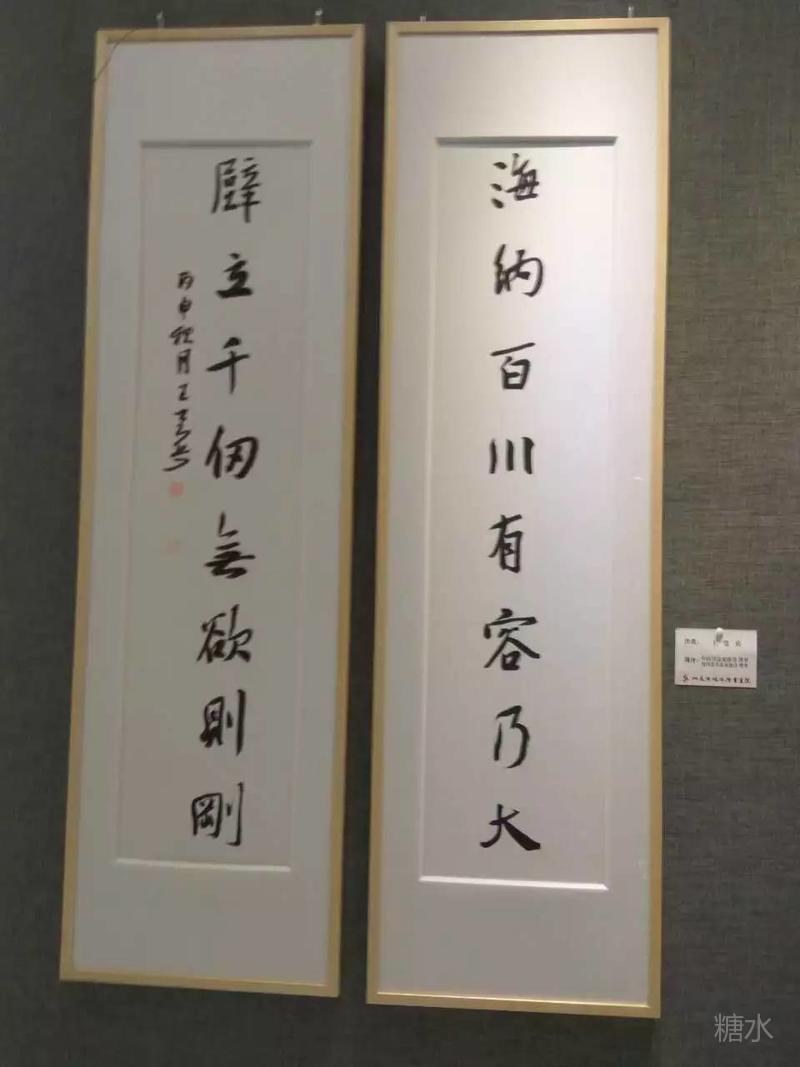 海納百川有容乃大
壁立千仞無欲則剛
丙申秋月王
糖水